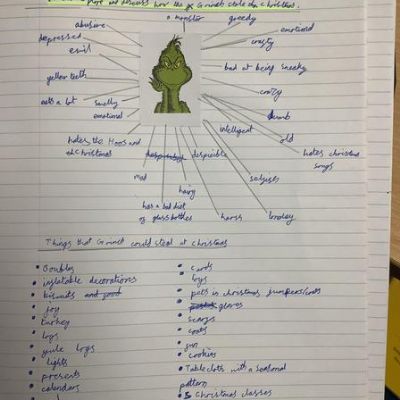 and discuss how the Grinch stole christmas.
a monster
greedy
abusive
emotional
depressed
crusty
evil
bad at being sneaky
yellow teeth
crazy
eats a lot
smelly
dumb
emotional
intelligent
old
hates the Hoos and
christmas
despicable
hates christmas
songs
mad
selfish
hairy
has a bad diet
of glass bottles
harsh
lonely
Things that Grinch could steal at christmas
• Baubles
• inflatable decorations
• biscuits and food
• joy
• turkey
• logs
• yule logs
• lights
• presents
• calendars
• cards
toys
• pets in christmas jumpers/coats
• gloves
• scarfs
• coats
• fun
• cookies
• Tablecloth with a seasonal
pattern
• Christmas classes